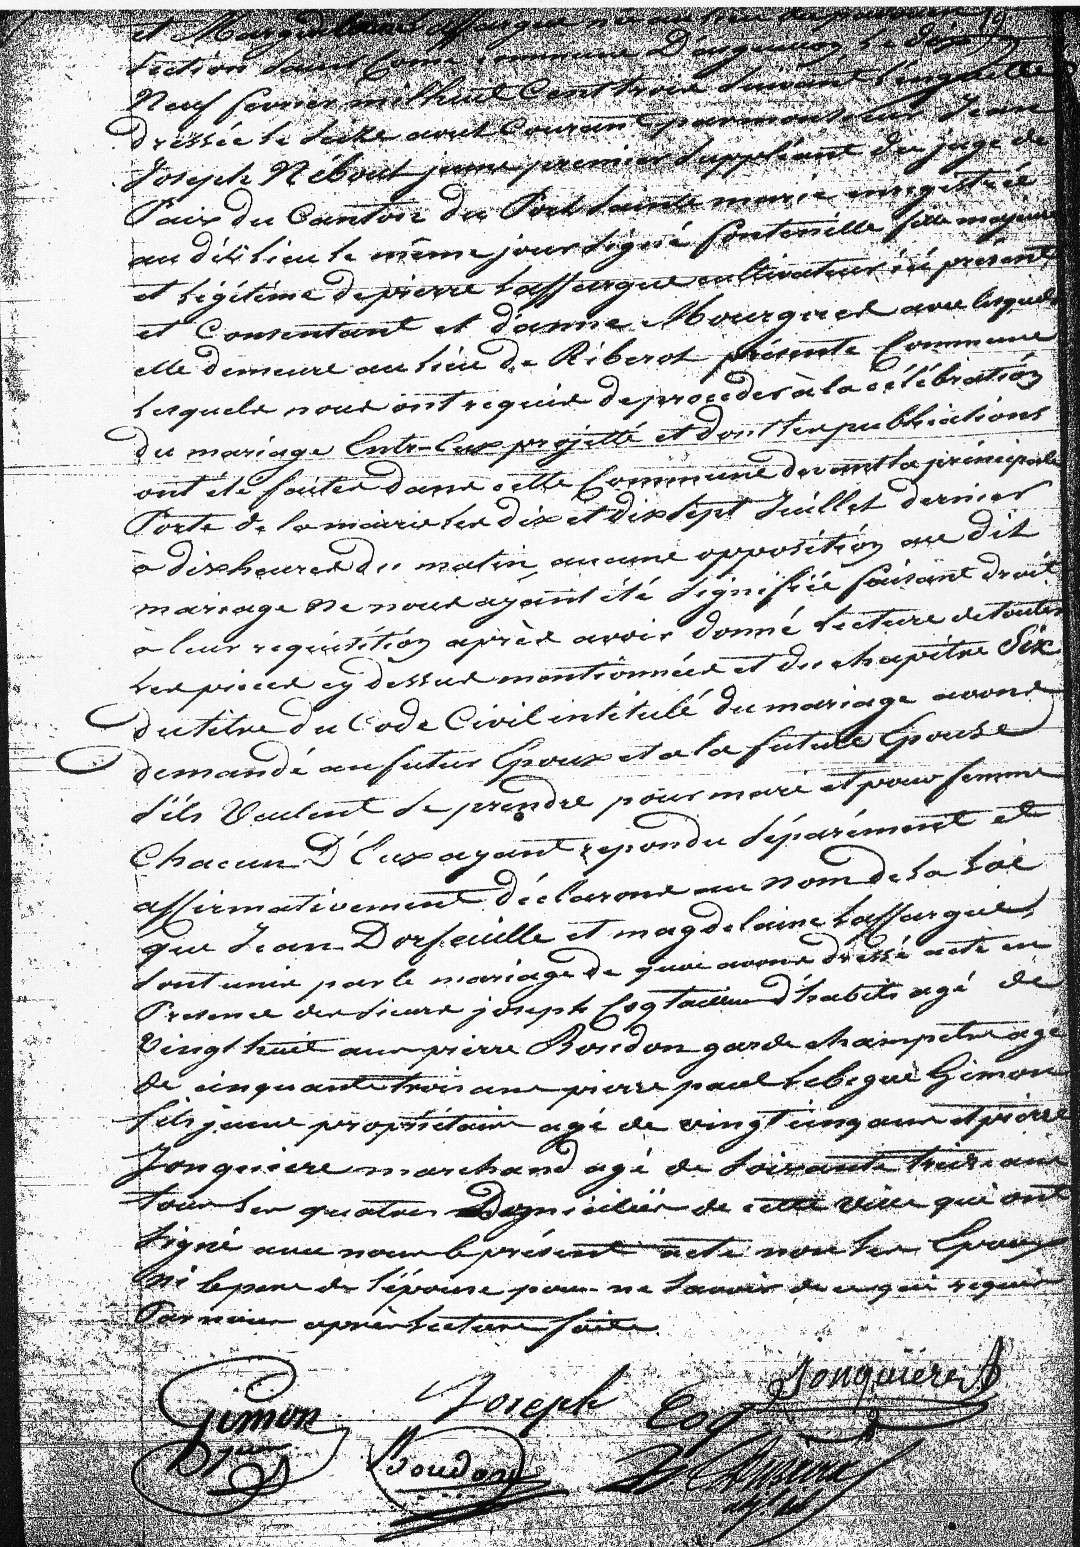 et Magdelaine Laffargue née au lieu de
section Saint Come commune D'aiguillon, le dix
Neuf fevrier mil huit Cent trois suivant l'enquette
dressée le seize aout Courant par monsieur Jean
Joseph Nébout jeune premier suppléant du juge de
Paix du Canton du Port sainte marie enregistrée
au dit lieu le même jour signé fontenille fille majeure
et légitime de pierre Laffargue cultivateur ici présent
et Consentant et d'anne Mourgues avec lesquels
elle demeure au lieu de Riberot présente Commune
lesquels nous ont requis de proceder à la célébration
du mariage Entr-Eux projetté et dont les publications
ont été faites dans cette Commune devant la principale
Porte de la mairie les dix et dix sept Juillet dernier
à dix heures du matin, aucune opposition au dit
mariage ne nous ayant été signifiée faisant droit
à leur requisition après avoir donné lecture de toutes
les pieces cy dessus mentionnées et du chapitre Six
du titre du Code Civil intitulé du mariage avons
demandé au futur Epoux et a la future Epouse
s'ils Veulent se prendre pour mari et pour femme
Chacun D'Eux ayant repondu séparément et
affirmativement déclarons au nom de la Loi
que Jean Dorfeuille et magdelaine Laffargue
sont unis par le mariage de quoi avons dressé acte en
Presence des sieurs joseph Coq tailleur d'habits agé de
Vingt huit ans pierre Boudon garde champêtre agé
de cinquante trois ans pierre paul Lebegue Gimon
fils jeune propriétaire agé de vingt cinq ans et pierre
Jonquiere marchand agé de soixante treize ans
tous les quatres Domiciliés de cette ville qui ont
signé avec nous le présent acte non les Epoux
ni le pere de l'épouse pour ne savoir de ce qui requis
Par nous après lecture faite.
Gimon Joseph Coq Jonquiere
jeune Boudon